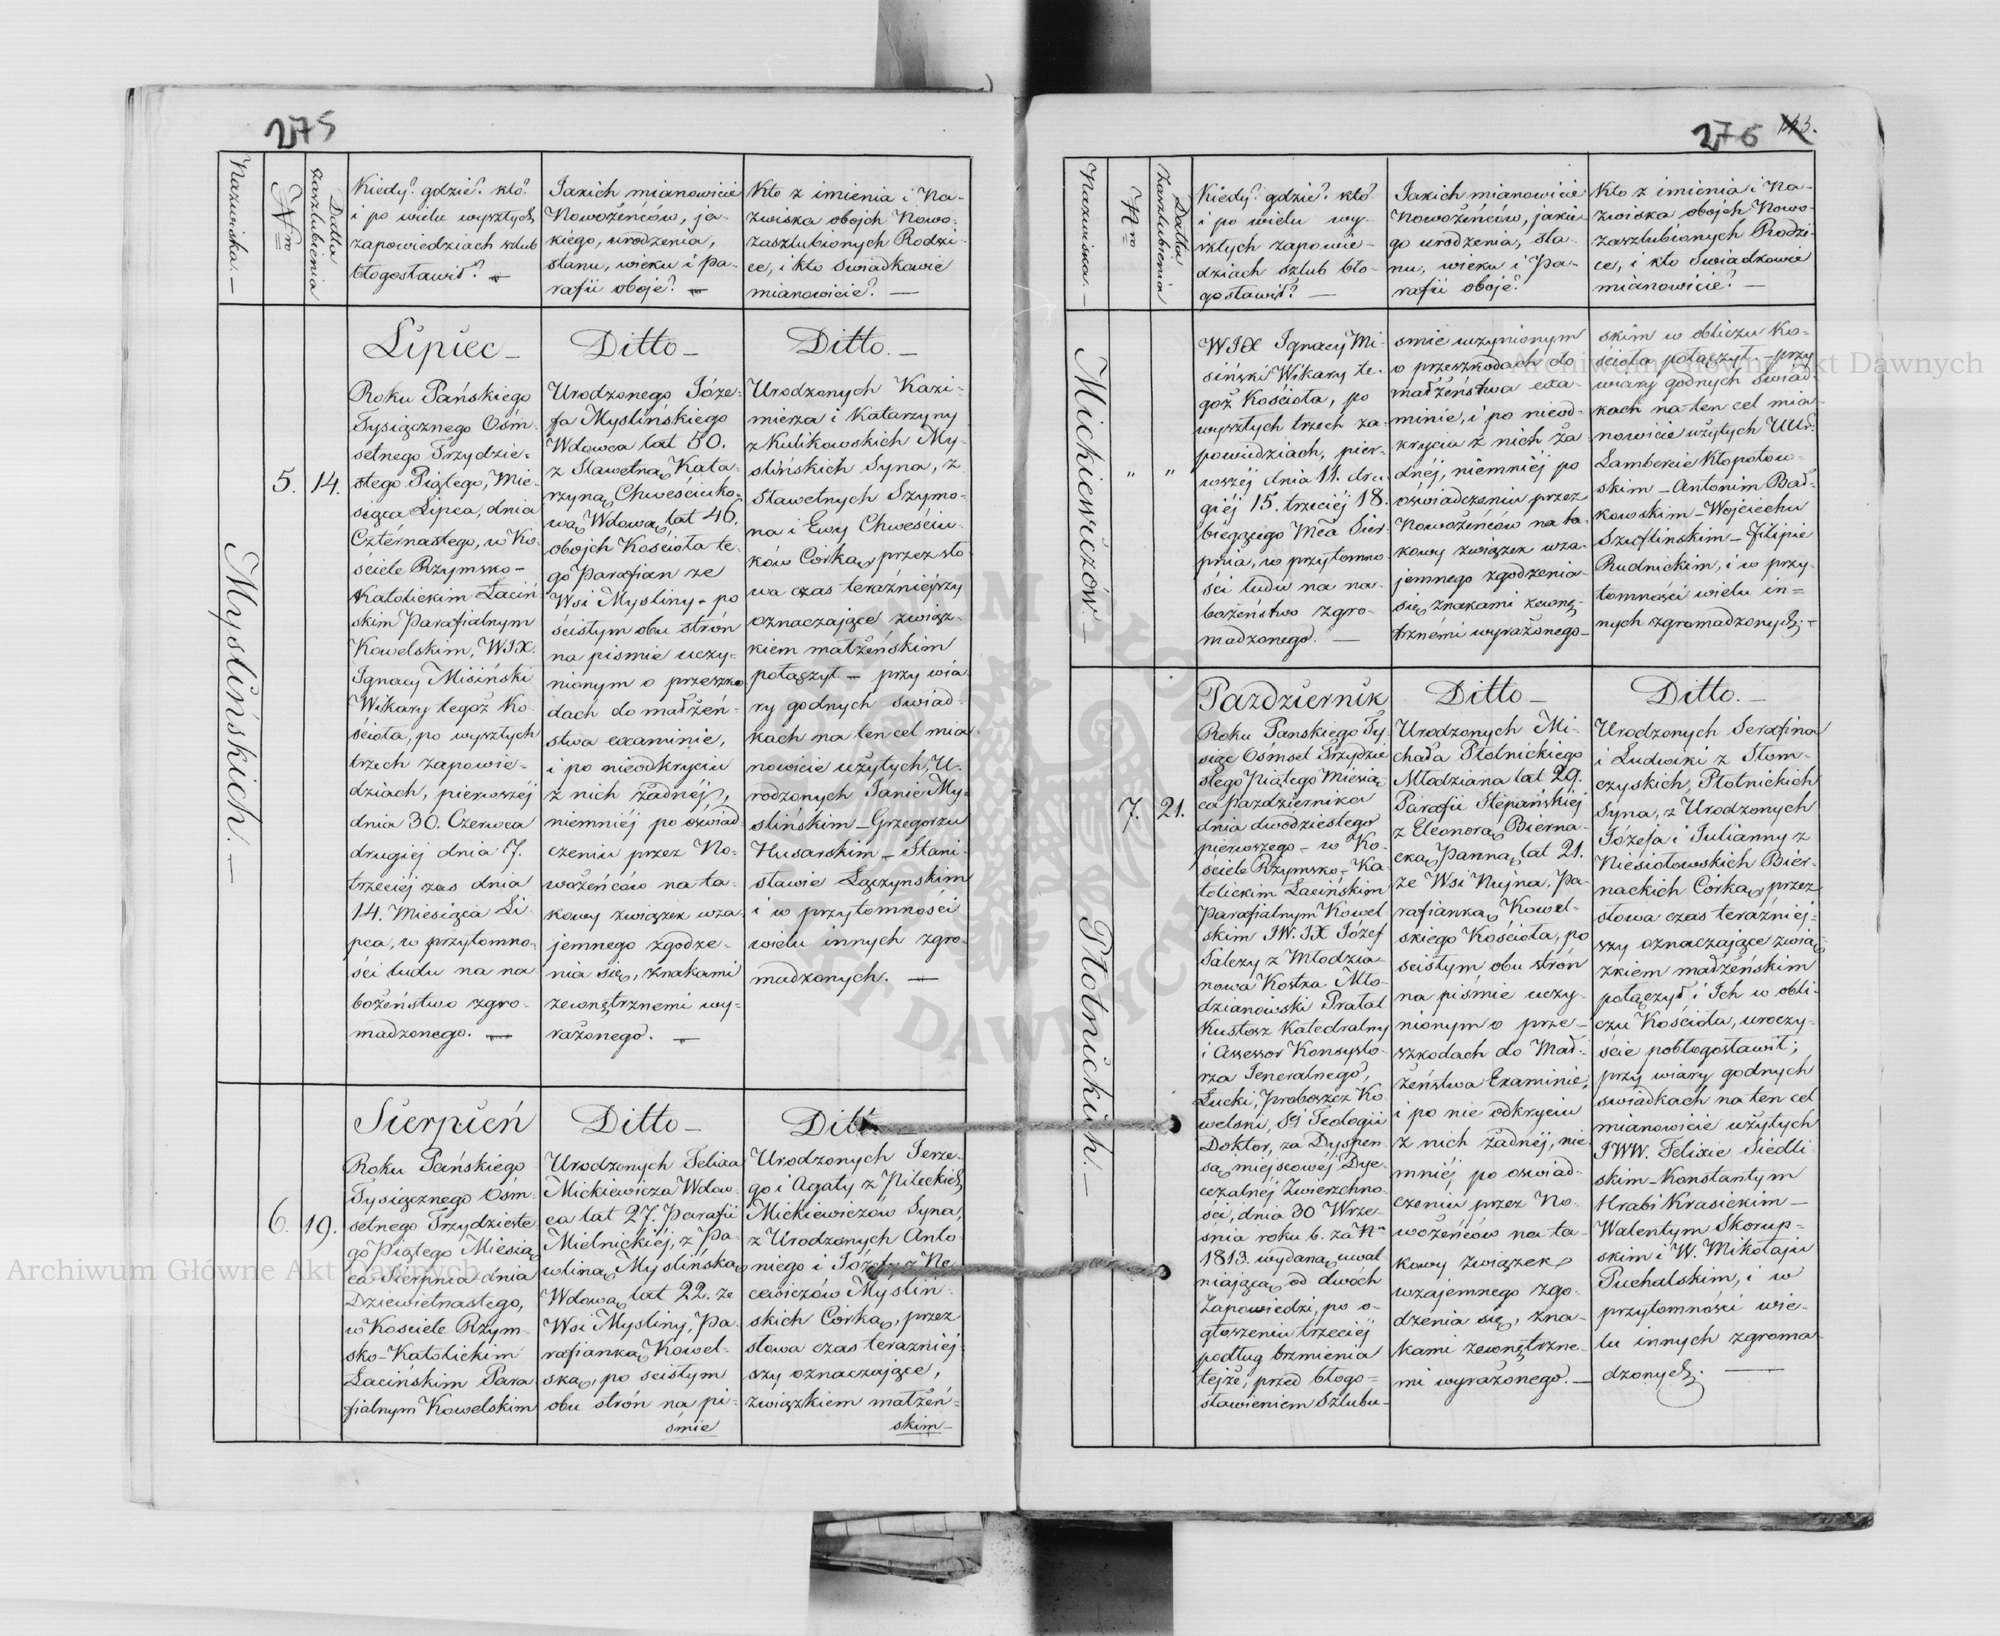 275
Nazwiska. —
Nro
Datta
zaszlubienia
Kiedy? gdzie? kto?
i po wielu wyszłych
zapowiedziach szlub
błogosławił? —
Jakich mianowicie
Nowożeńców, ja-
kiego, urodzenia,
stanu, wieku i pa-
rafii oboje? —
Kto z imienia i Na-
zwiska obojch Nowo-
zaszlubionych Rodzi-
ce, i kto Swiadkowie
mianowicie? —
Myslińskich. —
5.
14.
Lipiec —
Roku Pańskiego
Tysiącznego Ośm-
setnego Trzydzie-
stego Piątego, Mie-
siąca Lipca, dnia
Czternastego, w Ko-
ściele Rzymsko-
Katolickim Łaciń
skim Parafialnym
Kowelskim, WJX.
Ignacy Misiński
Wikary tegoż Ko-
ścioła, po wyszłych
trzech zapowie-
dziach, pierwszej
dnia 30. Czerwca
drugiej dnia 7.
trzeciéj zas dnia
14. Miesiąca Li-
pca, w przytomno-
ści ludu na na
bożeństwo zgro-
madzonego. —
Ditto —
Urodzonego Józe-
fa Myslińskiego
Wdowca lat 50.
z Sławetną Kata-
rzyną Chweściuko-
wą Wdową, lat 46.
obojch Kościoła te-
go Parafian ze
Wsi Mysliny - po
ścisłym obu strón
na pismie uczy-
nionym o przeszko-
dach do małżeń-
stwa examinie,
i po nieodkryciu
z nich żadnéj,
niemniéj po oświad
czeniu przez No-
wożeńców na ta-
kowy związek wza
jemnego zgodze-
nia się, znakami
zewnętrznemi wy-
rażonego. —
Ditto. —
Urodzonych Kazi-
mierza i Katarzyny
z Kulikowskich My-
slińskich Syna, z
Sławetnych Szymo-
na i Ewy Chweściu-
ków Córką, przez sło-
wa czas teraźniejszy
oznaczające związ-
kiem małżeńskim
połączył — przy wia
ry godnych swiad-
kach na ten cel mia
nowicie użytych, U-
rodzonych Janie My-
slińskim — Grzegorzu
Husarskim — Stani-
sławie Łączynskim
i w przytomności
wielu innych zgro-
madzonych. —
6.
19.
Sierpień
Roku Pańskiego
Tysiącznego Ośm-
setnego Trzydzieste-
go Piątego Miesią
ca Sierpnia dnia
Dziewietnastego,
w Kosciele Rzym-
sko-Katolickim
Łacińskim Para
fialnym Kowelskim
Ditto —
Urodzonych Felixa
Mickiewicza Wdow-
ca lat 27. Parafii
Mielnickiéj, z Pa-
wliną Myslińską
Wdową lat 22. ze
Wsi Mysliny, Pa-
rafianką Kowel-
ską, po scisłym
obu strón na pi-
śmie
Ditto —
Urodzonych Jerze-
go i Agaty z Pileckich
Mickiewiczów Syna,
z Urodzonych Anto
niego i Józefy z Ne
cewiczów Myslin-
skich Córką, przez
słowa czas teraźniéj-
szy oznaczające,
związkiem małżeń-
skim —
276
143.
Nazwiska. —
Nro
Datta
Zaszlubienia
Kiedy? gdzie? kto?
i po wielu wy-
szłych zapowie-
dziach szlub bło-
gosławił? —
Jakich mianowicie
Nowożeńców, jakie-
go urodzenia, sta-
nu, wieku i Pa-
rafii oboje?
Kto z imienia i Na-
zwiska obojch Nowo-
zaszlubionych Rodzi-
ce, i kto Swiadkowie
mianowicie? —
Mickiewiczów —
"
"
WJX Ignacy Mi-
siński Wikary te-
goż Kościoła, po
wyszłych trzech za-
powiedziach, pier-
wszéj dnia 11. dru-
giéj 15. trzeciéj 18.
bieżącego Mca Sier-
pnia, w przytomno
ści ludu na na-
bożeństwo zgro-
madzonego. —
smie uczynionym
o przeszkodach do
małżeństwa exa-
minie, i po nieod-
kryciu z nich ża
dnéj, niemniéj po
oświadczeniu przez
Nowożeńców na ta-
kowy związek wza-
jemnego zgodzenia-
się, znakami zewnę-
trznémi wyrażonego —
skim w obliczu Ko-
ścioła połączył — przy
wiary godnych Swiad-
kach na ten cel mia-
nowicie użytych UUr.
Lambercie Kłopotow-
skim — Antonim Bał-
kowskim — Wojciechu
Szuflinskim — Filipie
Rudnickim, i w przy-
tomności wielu in=
nych zgromadzonych. —
Płotnickich. —
7.
21.
Pazdziernik
Roku Panskiego Ty-
siąc Osmset Trzydzie
stego Piątego Miesią-
ca Pazdziernika
dnia dwudziestego
pierwszego — w Ko-
ściele Rzymsko-Ka-
tolickim Łacińskim
Parafialnym Kowel
skim JW. JX Józef
Salezy z Młodzia-
nowa Kostka Mło-
dzianowski Prałat
Kustosz Katedralny
i Assessor Konsysto-
rza Jeneralnego,
Łucki, Proboszcz Ko
welski, Sy Teologii
Doktor, za Dyspen
są miejscowéj Dye-
cezalnéj Zwierzchno-
ści, dnia 30 Wrze-
śnia roku b. za No
1813. wydaną uwal
niającą od dwóch
Zapowiedzi, po o-
głoszeniu trzeciéj
podług brzmienia
tejże, przed błogo-
sławieniem Szlubu —
Ditto —
Urodzonych Mi-
chała Płotnickiego
Młodziana lat 29.
Parafii Stepańskiej
z Eleonorą Bierna-
cką Panną lat 21.
ze Wsi Nujna, Pa-
rafianką Kowel-
skiego Kościoła, po
scisłym obu stron
na piśmie uczy-
nionym o prze-
szkodach do Mał-
żeństwa Examinie,
i po nie odkryciu
z nich żadnéj, nie
mniéj po oswiad-
czeniu przez No-
wożeńców na ta-
kowy związek
wzajemnego zgo-
dzenia się, zna-
kami zewnętrzne-
mi wyrażonego. —
Ditto. —
Urodzonych Serafina
i Ludwiki z Słom-
czyskich, Płotnickich
Syna, z Urodzonych
Józefa i Julianny z
Niesiołowskich Bier-
nackich Córką, przez
słowa czas teraźniej-
szy oznaczające zwią-
zkiem małżeńskim
połączył i Ich w obli-
czu Kościoła, uroczy-
ście pobłogosławił;
przy wiary godnych
swiadkach na ten cel
mianowicie użytych
JWW. Felixie Siedli
skim — Konstantym
Hrabi Krasickim —
Walentym Skorup-
skim i W. Mikołaju
Puchalskim, i w
przytomności wie-
lu innych zgroma-
dzonych. —
Archiwum Główne Akt Dawnych
Archiwum Główne Akt Dawnych